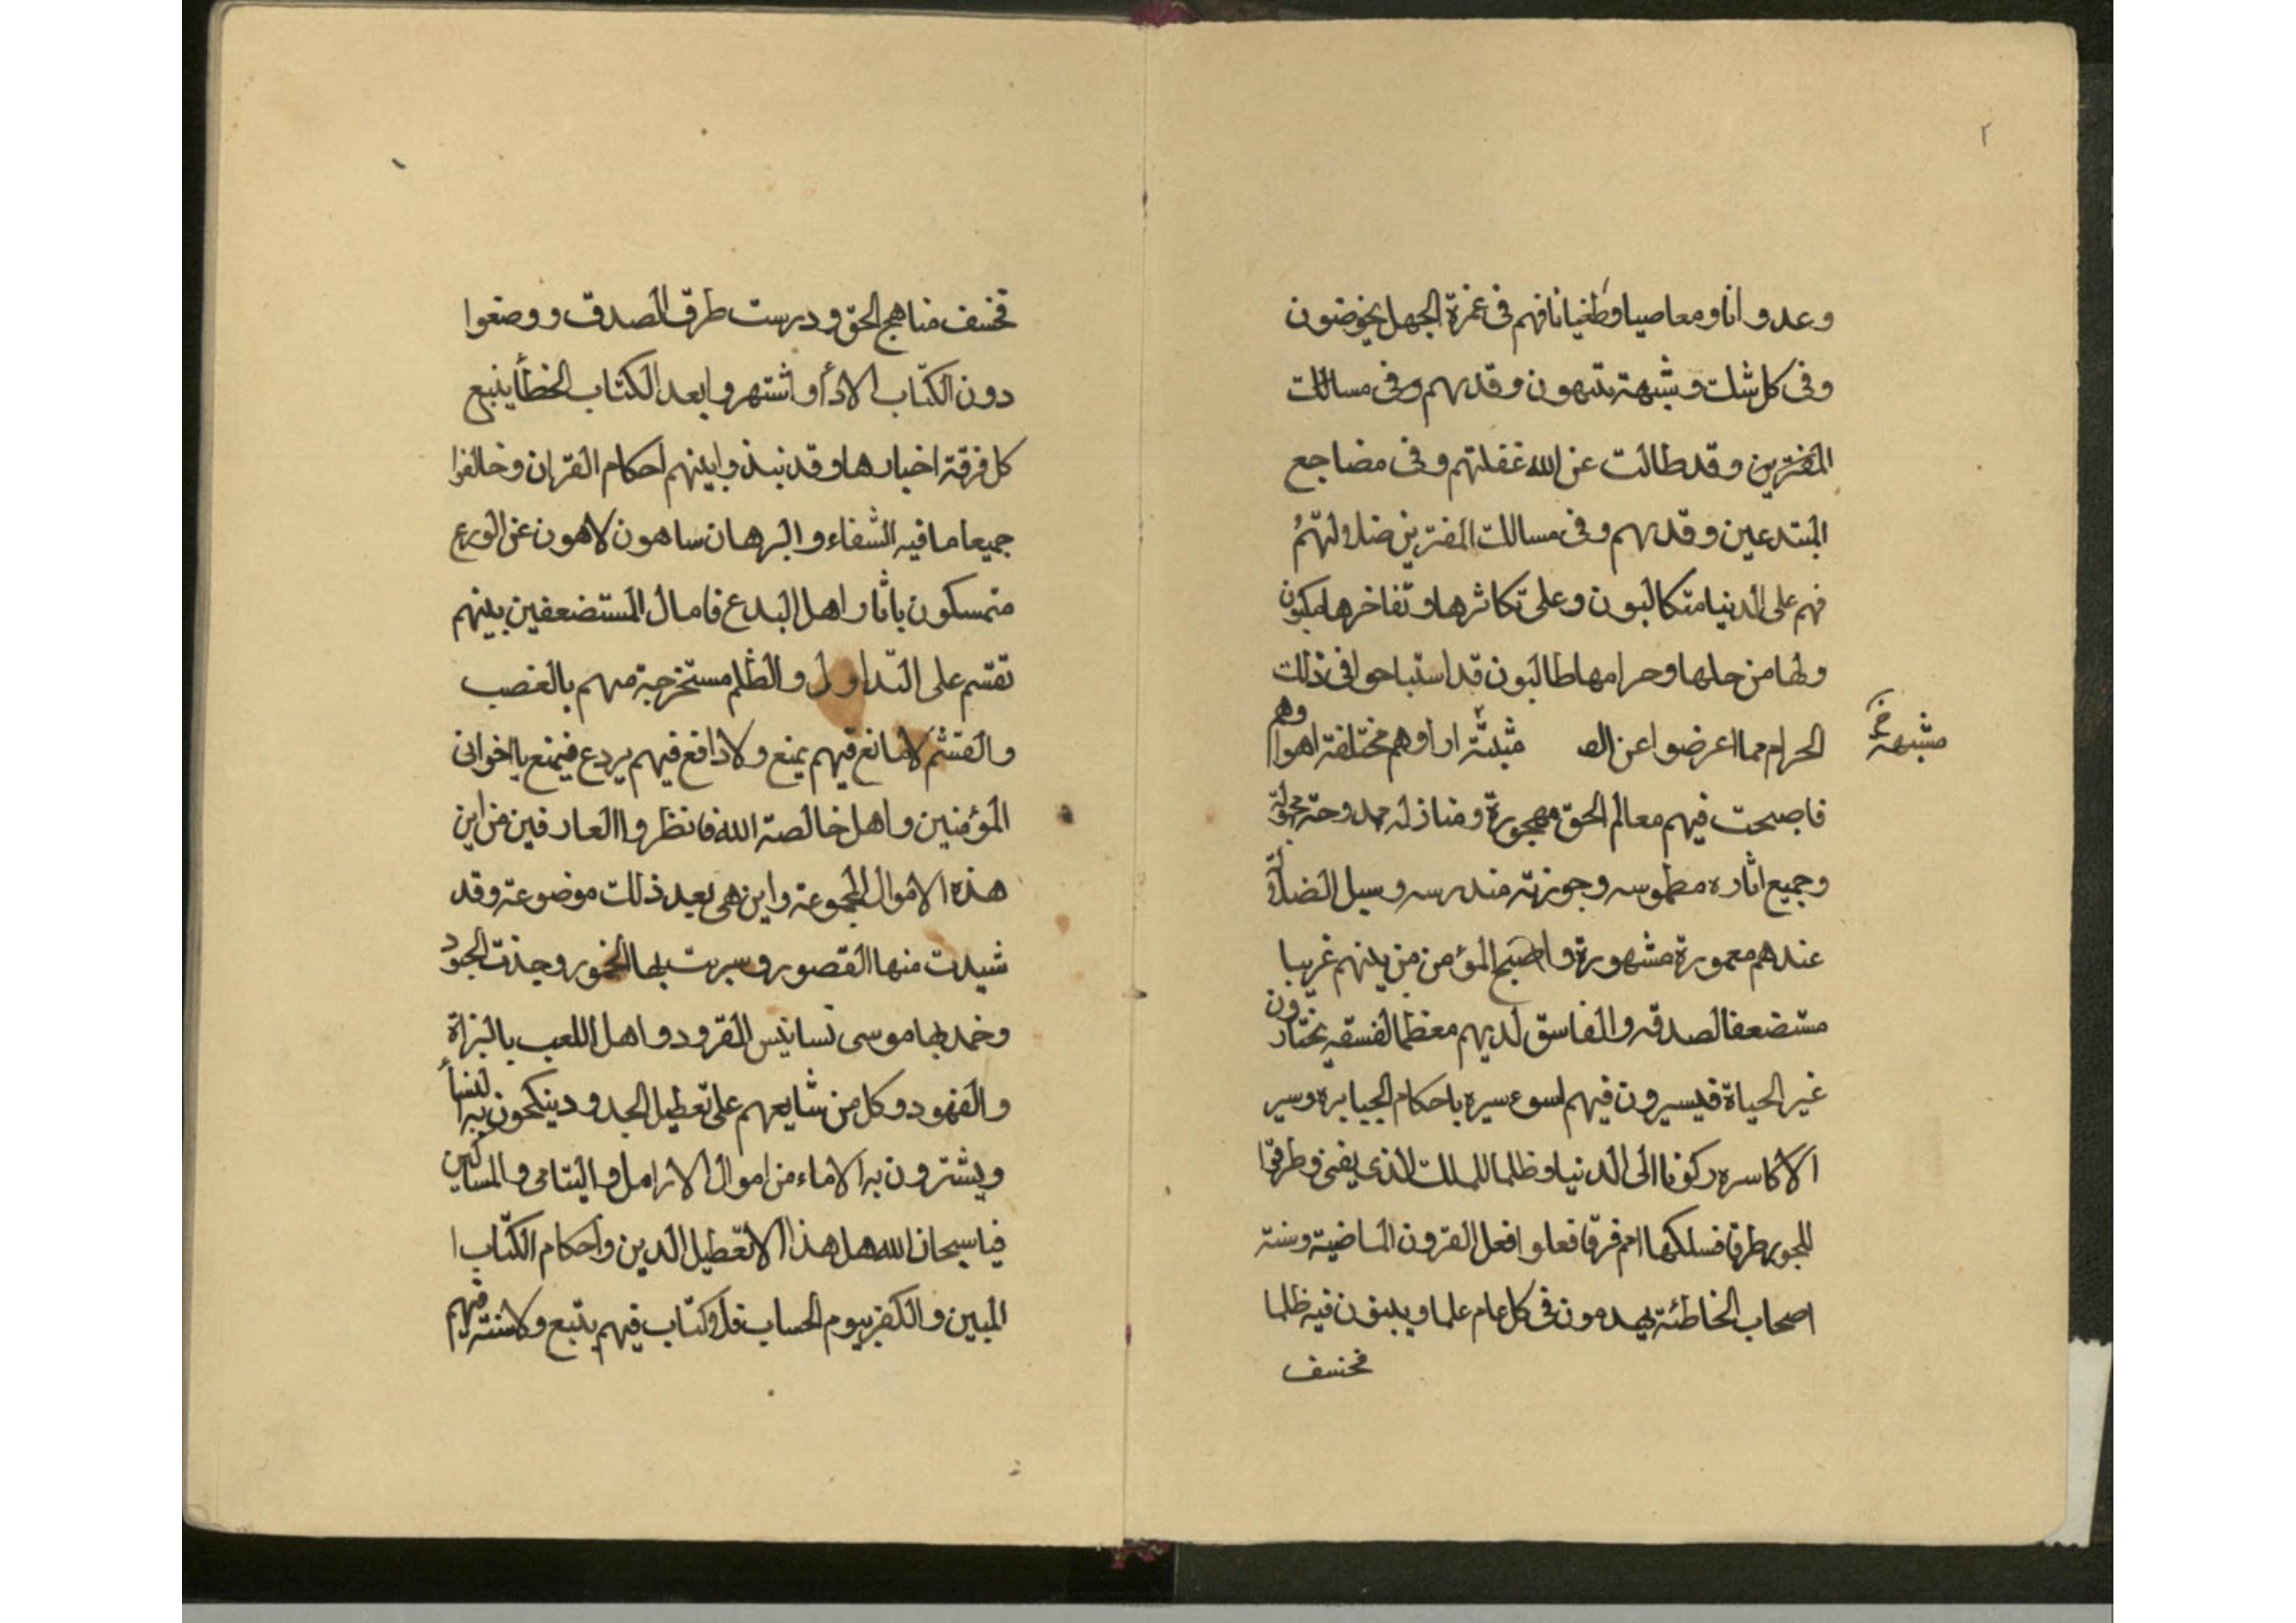 ٢
وعدوانا ومعاصيا وطغيانا فهم فى غمرة الجهل يخوضون
وفى كل شك وشبهة يتيهون وقديهم وفى مسالك
المفترين وقد طالت عن الله غفلتهم وفى مضاجع
المبتدعين وقديهم وفى مسالك المفترين ضلالتهم
فهم على الدنيا متكالبون وعلى تكاثرها وتفاخرها مكبون
ولها من حلها وحرامها طالبون قد استباحوا فى ذلك
الحرام مما اعرضوا عن وهم مختلفة اهوا وهم
مشبهة خ
فاصبحت فيهم معالم الحق مهجورة ومنازله
وجميع اثاره مطموسه مندرسه وسبل الضلالة
عندهم معمورة مشهورة واصبح المؤمن من بينهم غريبا
مستضعفا لصدقه والفاسق لديهم معظما لفسقه يختارون
غير الحياة فيسيرون فيهم اسوء سيره باحكام الجبابره وسير
الاكاسره ركونا الى الدنيا وظلما للملك الذى يفنى وطرقوا
للجور طرقا فسلكها امم فرقا فعلوا فعل القرون الماضية وسنة
اصحاب الخاطئة يهدمون فى كل عام علما ويبنون فيه ظلما
فخسف
فخسف مناهج الحق ودرست طرق الصدق ووضعوا
دون الكتاب الارأ واشتهروا بعد الكتاب الخطأ يتبع
كل فرقة اخبارها وقد نبذوا بينهم احكام القران وخالفوا
جميعا ما فيه الشفاء والبرهان ساهون لاهون عن الورع
متمسكون باثار اهل البدع فامال المستضعفين بينهم
تقسم على التداول والظلم مستخرجة منهم بالغصب
والغشم لا مانع فيهم يمنع ولا دافع فيهم يردع فيمنع يا اخوانى
المؤمنين واهل خالصة الله فانظروا العارفين من اين
هذه الاموال المجموعة واين هى بعد ذلك موضوعة وقد
شيدت منها القصور وسبرت بها الخمور
وخمد بها موسى نسانيس القرود واهل اللعب بالبزاة
والفهود وكل من شايعهم على تعطيل الحدود ينكحون به النسأ
ويشترون به الاماء من اموال الارامل واليتامى والمساكين
فيا سبحان الله هل هذا الا تعطيل الدين واحكام الكتاب ا
المبين والكفر بيوم الحساب فلا كتاب فيهم يتبع ولا سنة فيهم